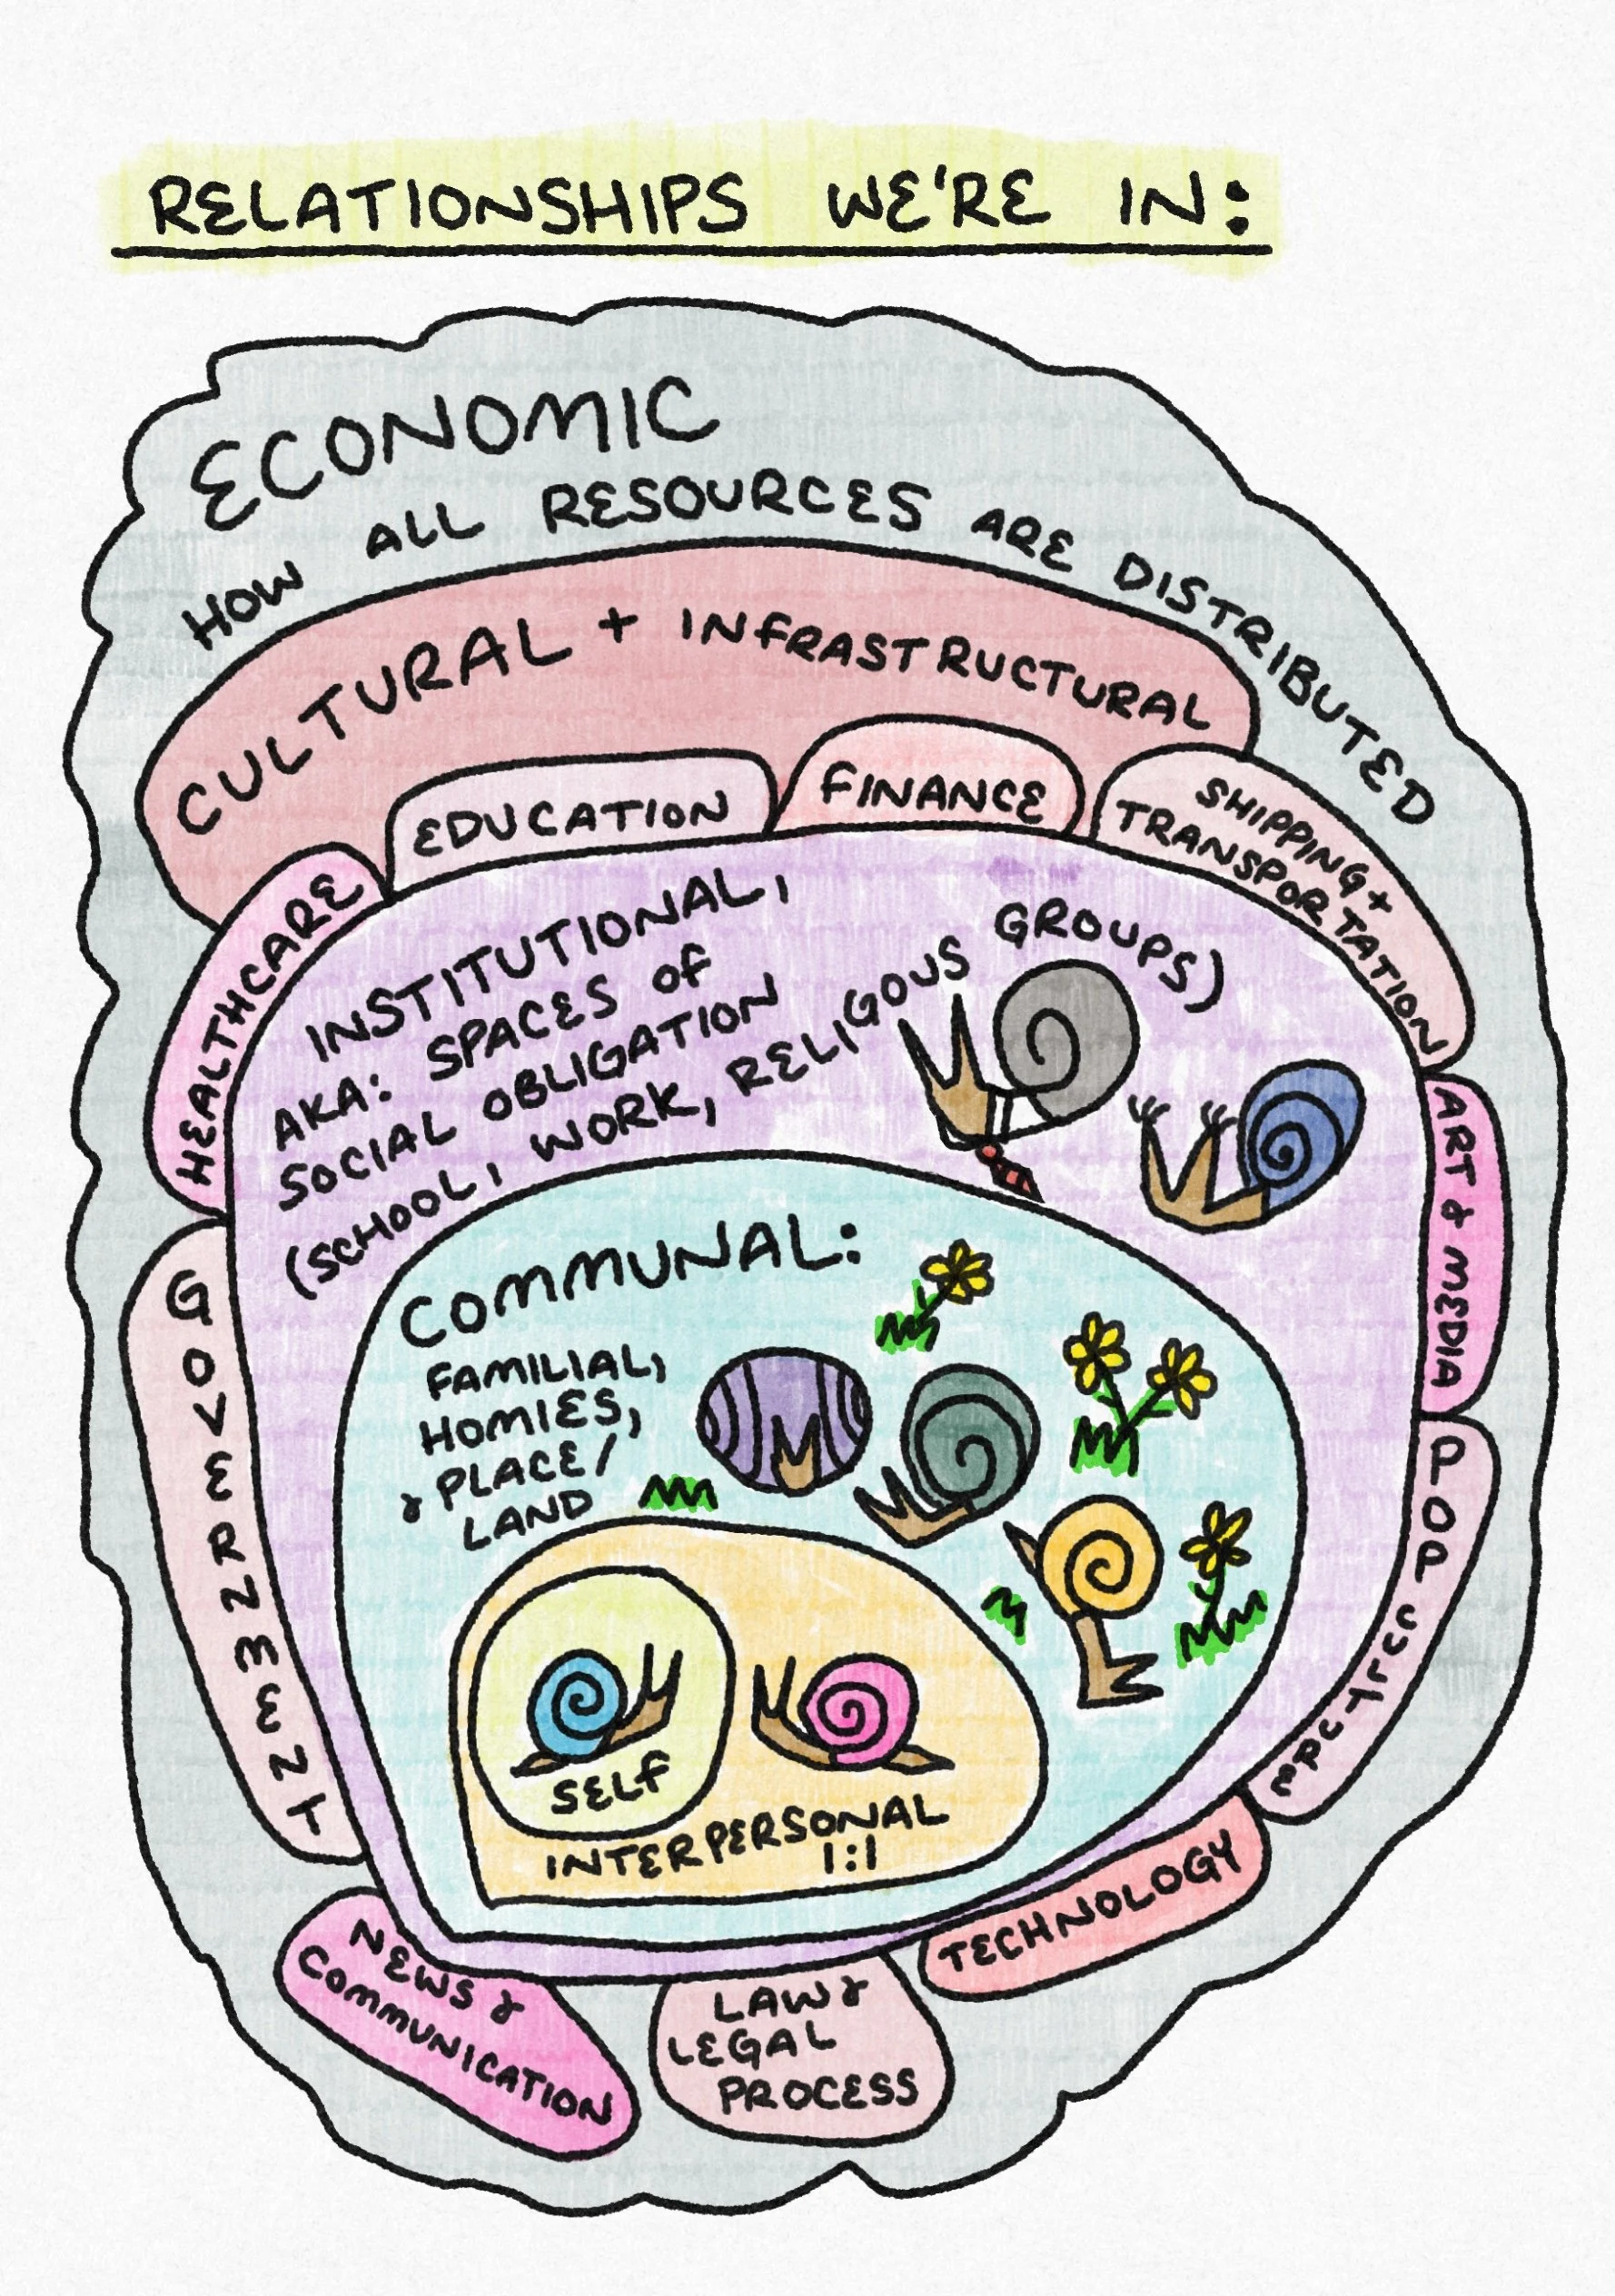 RELATIONSHIPS WE'RE IN:
ECONOMIC
HOW ALL RESOURCES ARE DISTRIBUTED
CULTURAL + INFRASTRUCTURAL
HEALTHCARE
EDUCATION
FINANCE
SHIPPING +
TRANSPORTATION
ART & MEDIA
POP CULTURE
TECHNOLOGY
LAW &
LEGAL
PROCESS
NEWS &
COMMUNICATION
GOVERNMENT
INSTITUTIONAL,
AKA: SPACES OF
SOCIAL OBLIGATION
(SCHOOL, WORK, RELIGOUS GROUPS)
COMMUNAL:
FAMILIAL,
HOMIES,
& PLACE/
LAND
SELF
INTERPERSONAL
1:1